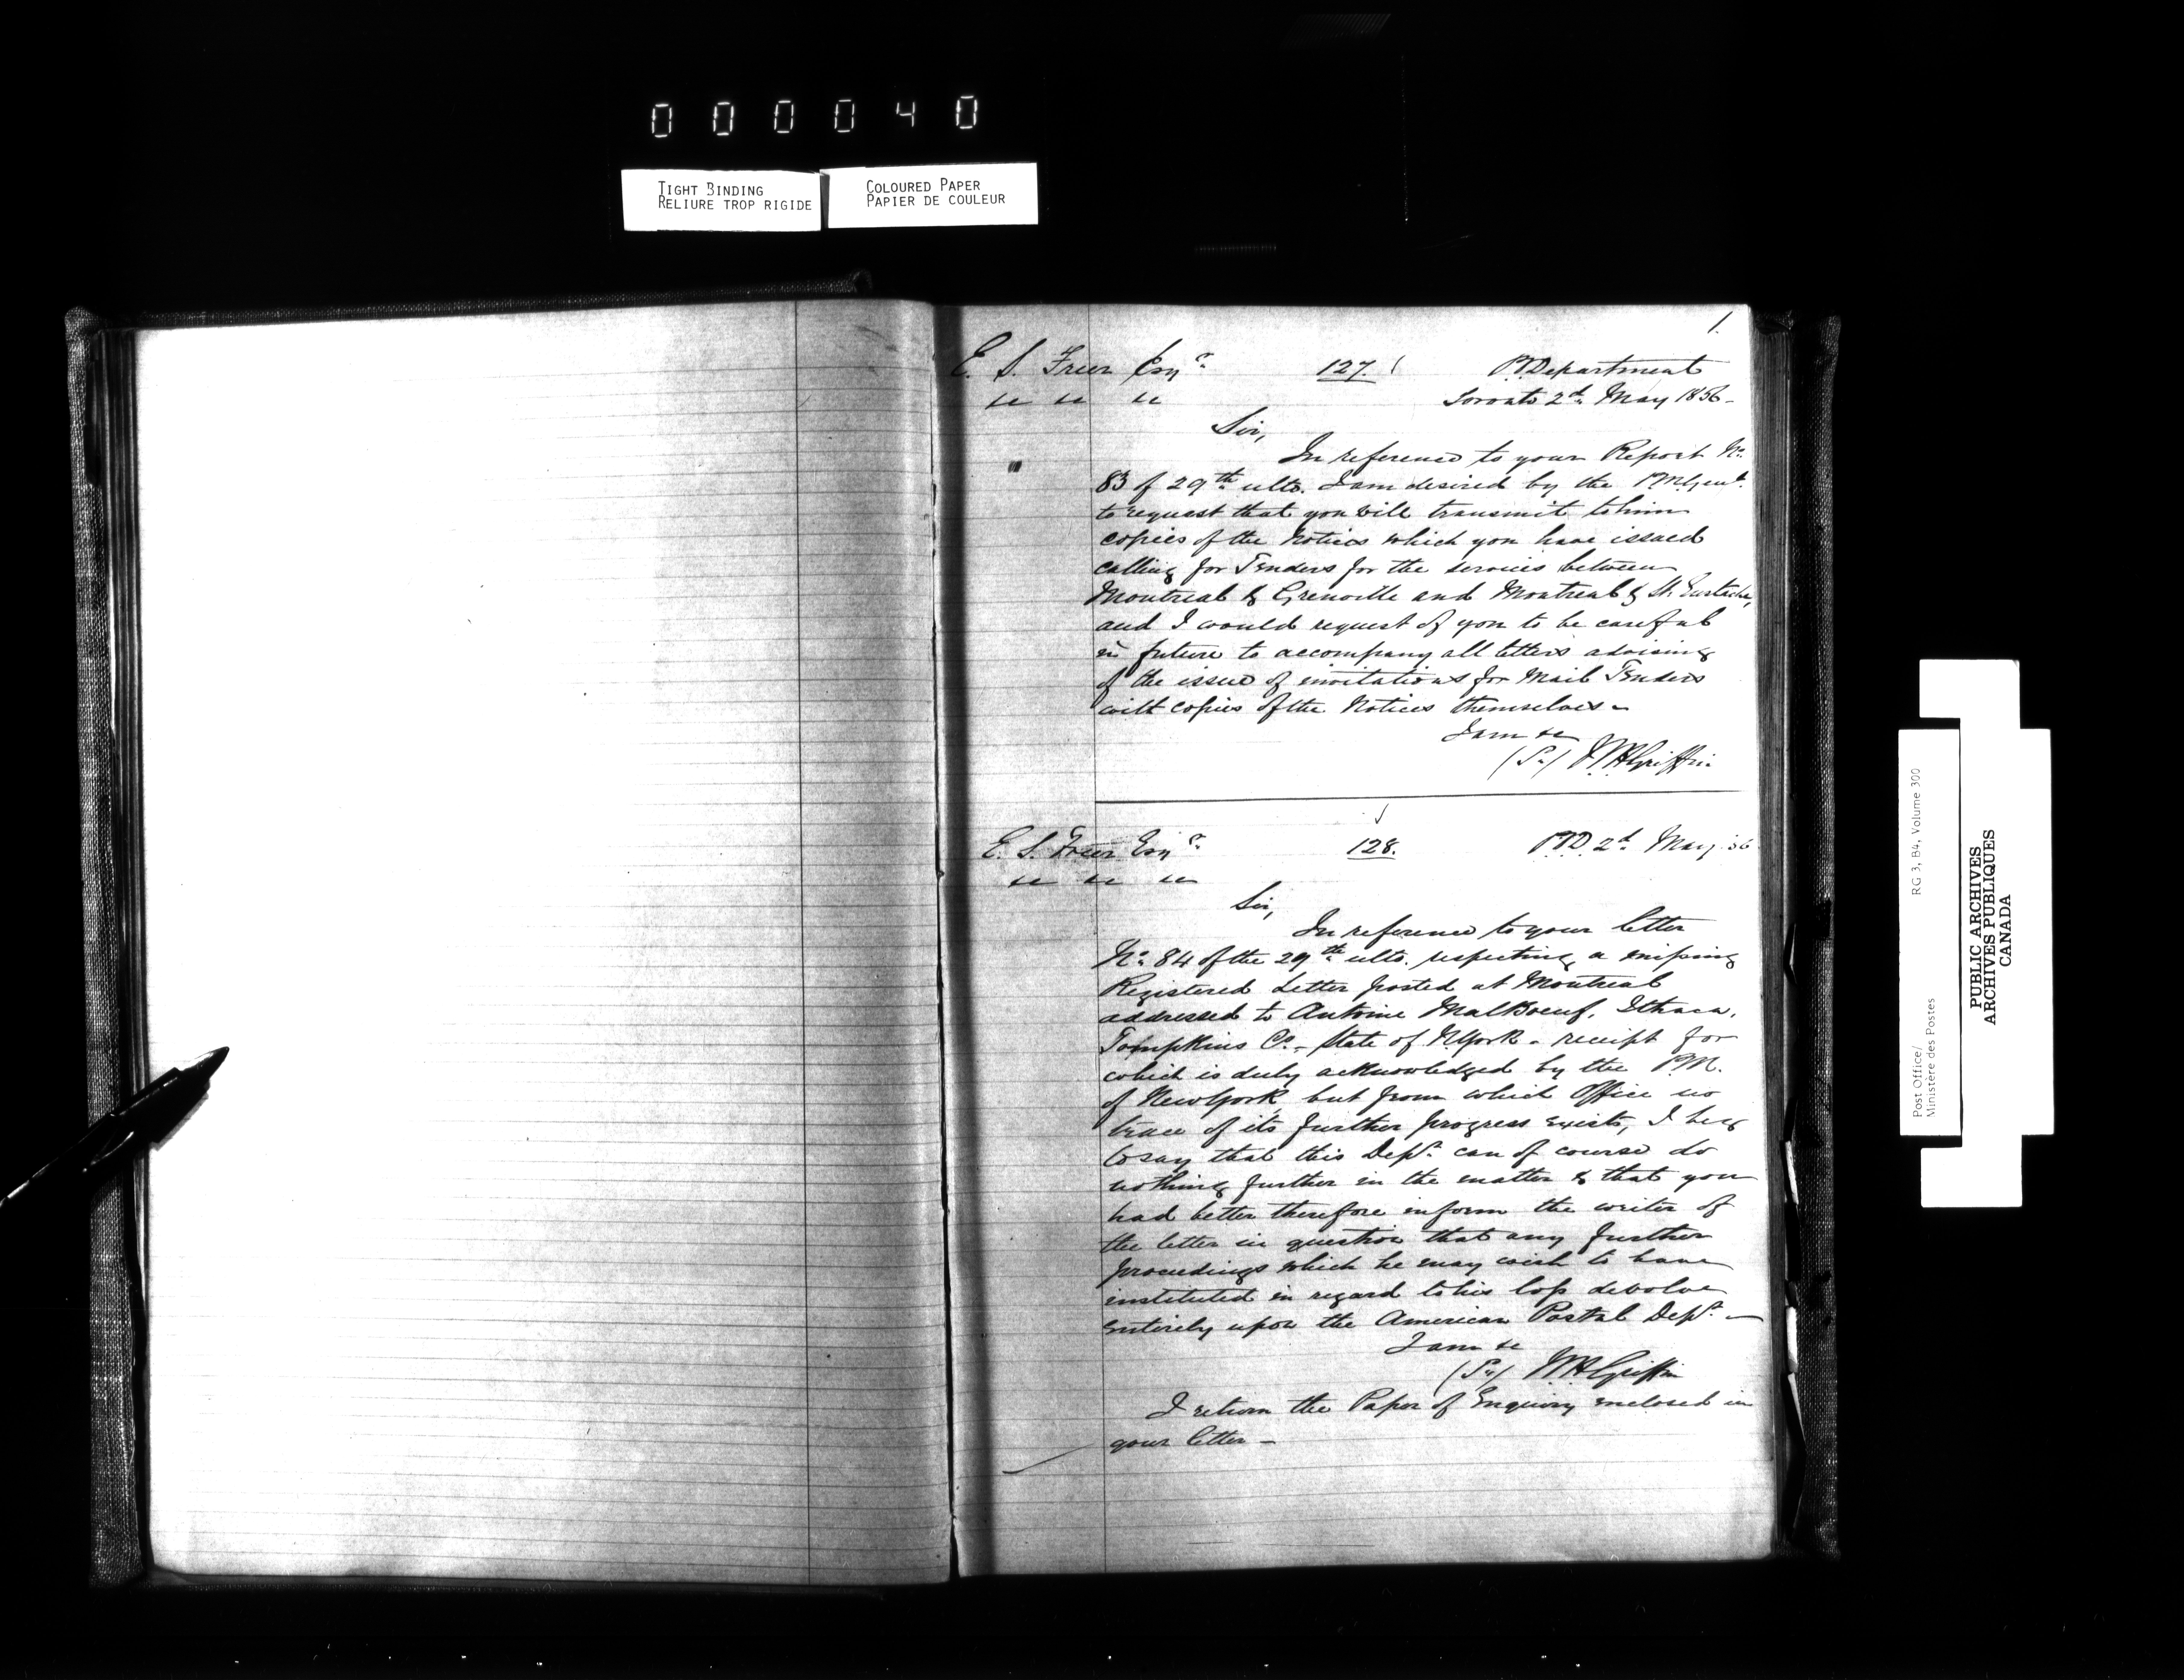 0 0 0 0 4 0
TIGHT BINDING
RELIURE TROP RIGIDE
COLOURED PAPER
PAPIER DE COULEUR
1.
E. S. Freer Esqr. 127. P.O. Department
" " " Toronto 2d. May 1856 -
Sir,
In reference to your Report No.
83 of 29th ulto. I am desired by the PMGenl.
to request that you will transmit to him
copies of the Notices which you have issued
calling for Tenders for the services between
Montreal & Grenville and Montreal & St. Eustache,
and I would request of you to be careful
in future to accompany all letters advising
of the issue of invitations for Mail Tenders
with copies of the Notices themselves -
I am &c
(Sd) W H Griffin
E. S. Freer Esqr. 128. P.O.D. 2d. May 56
" " "
Sir,
In reference to your letter
No. 84 of the 29th ulto. respecting a missing
Registered Letter posted at Montreal
addressed to Antoine MalBoeuf, Ithaca,
Tompkins Co. - State of N. York - receipt for
which is duly acknowledged by the P.M.
of New York, but from which Office no
trace of its further progress exists, I beg
to say that this Dept. can of course do
nothing further in the matter & that you
had better therefore inform the writer of
the letter in question that any further
proceedings which he may wish to have
instituted in regard to his loss devolve
entirely upon the American Postal Dept. -
I am &c
(Sd) W H Griffin
I return the Paper of Enquiry enclosed in
your letter -
Post Office/ RG 3, B4, Volume 300
Ministère des Postes
PUBLIC ARCHIVES
ARCHIVES PUBLIQUES
CANADA